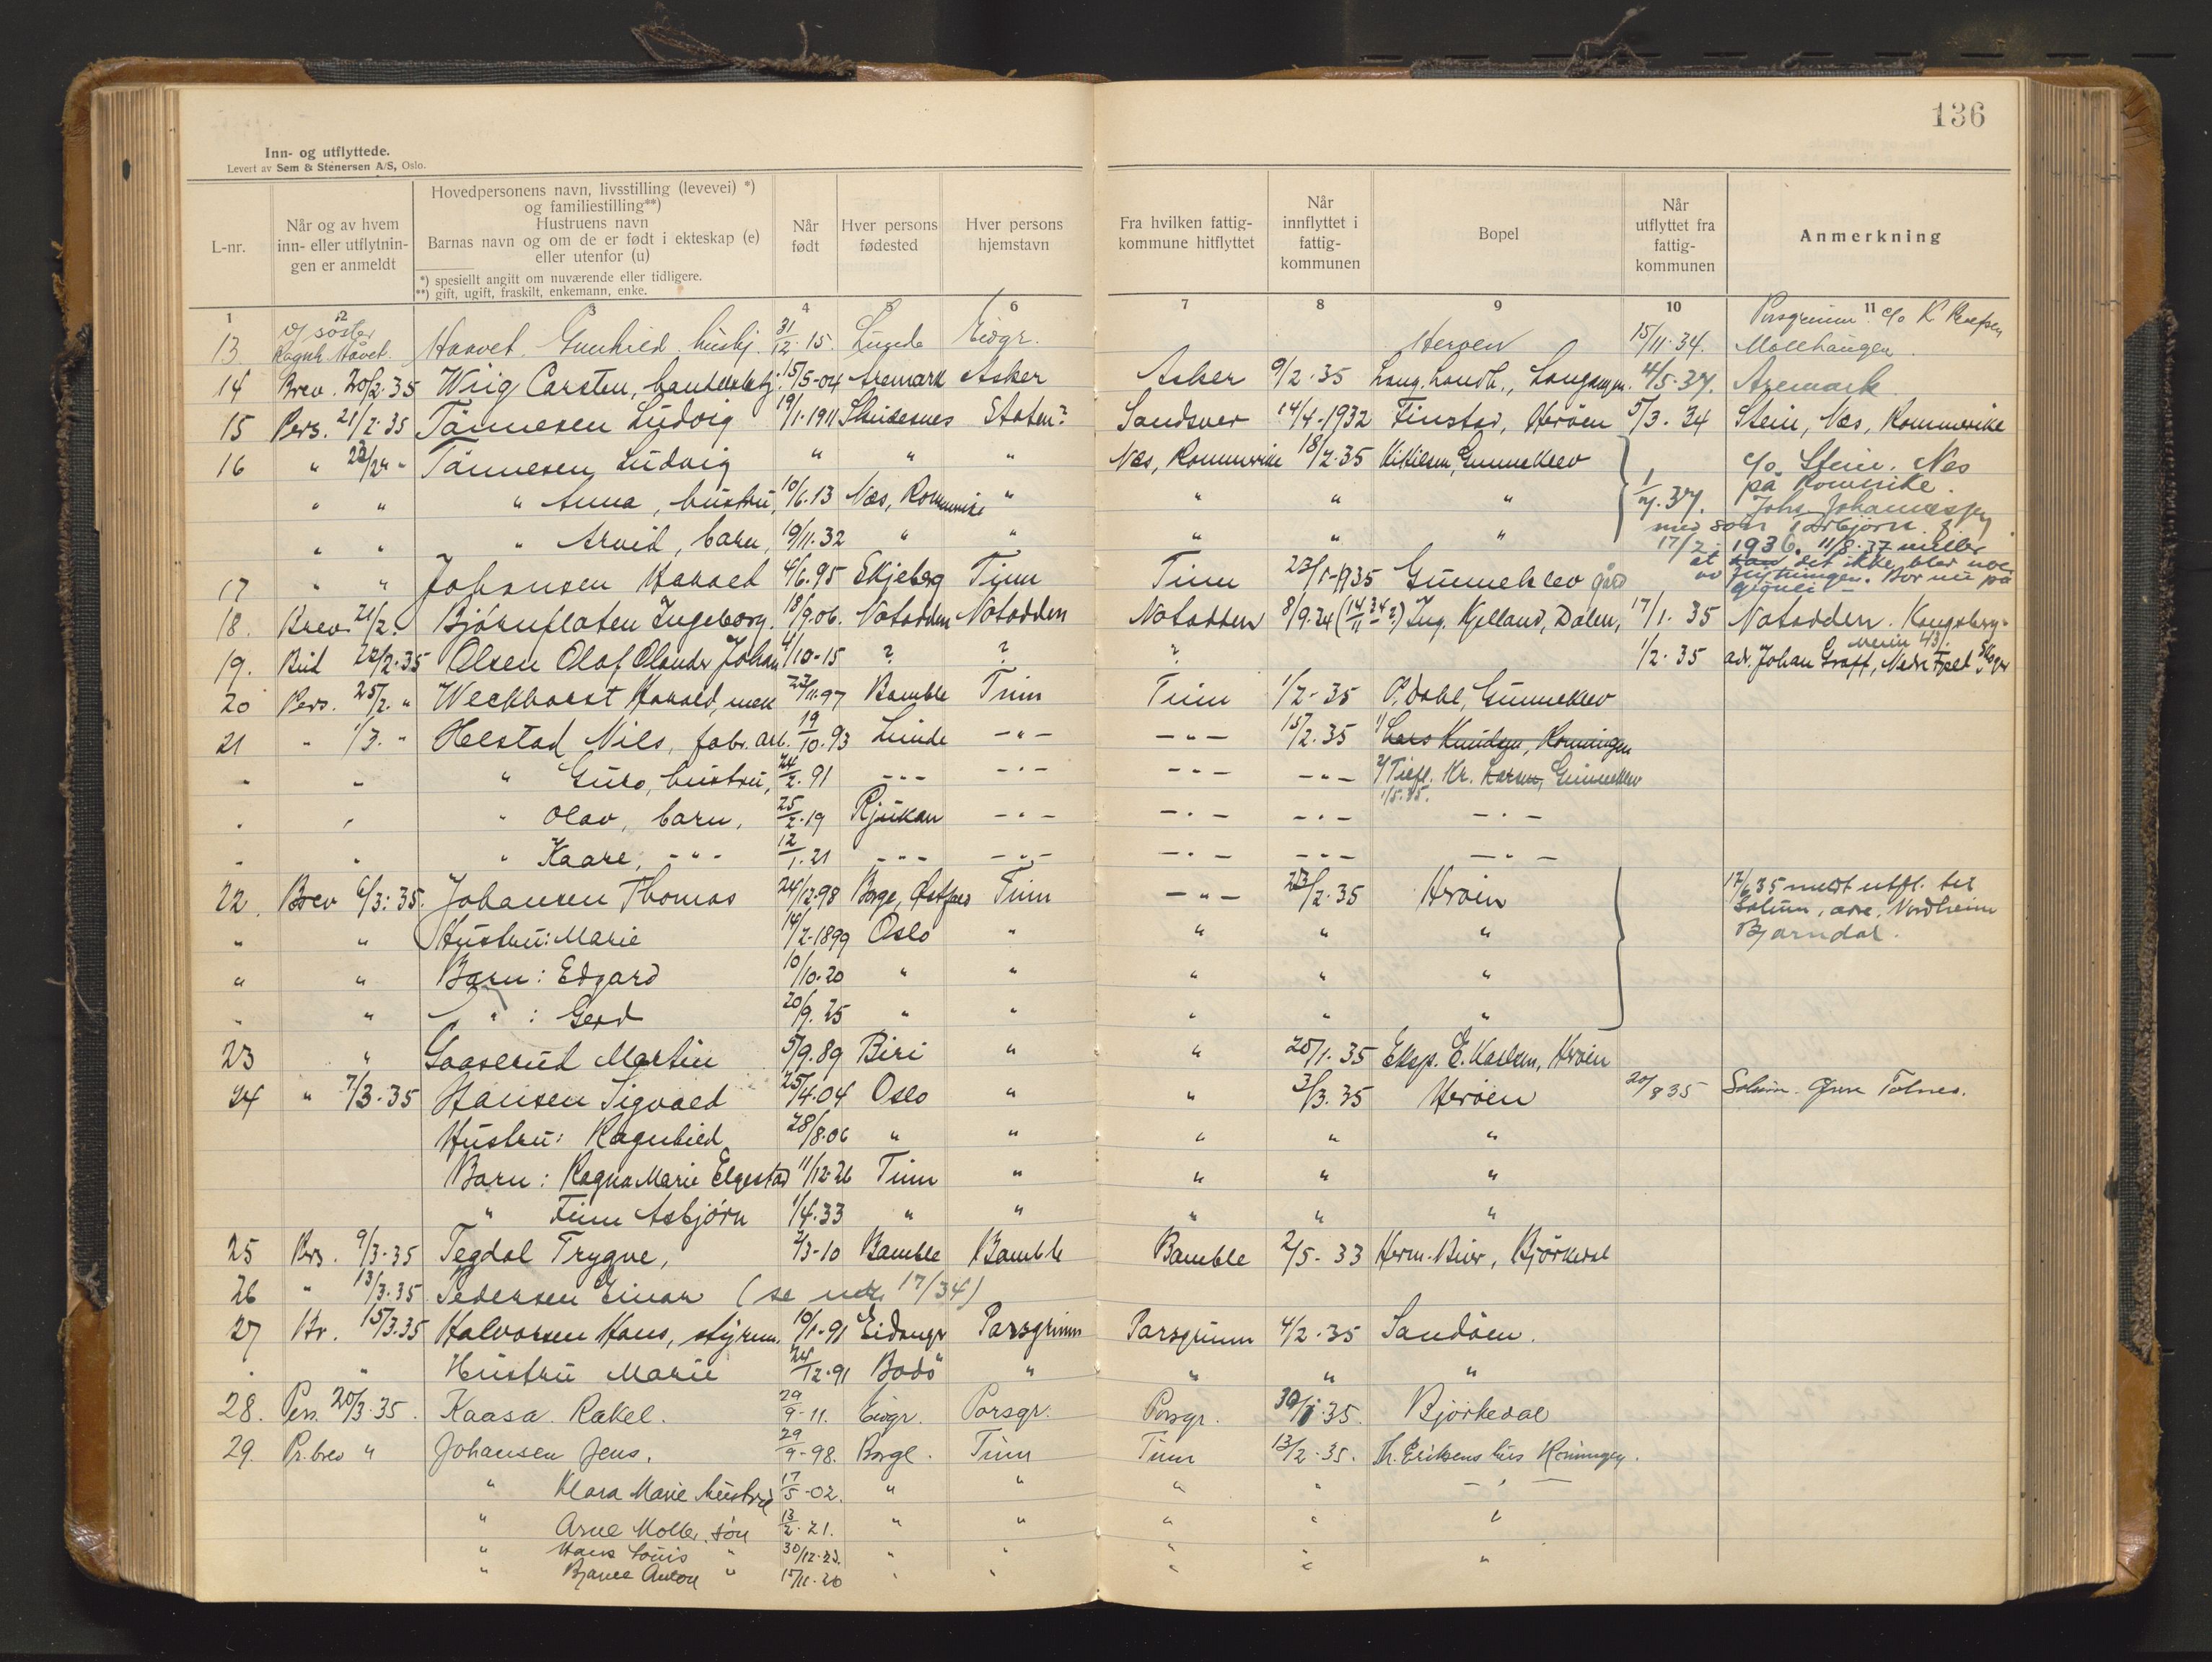 136
Inn- og utflyttede.
Levert av Sem & Stenersen A/S, Oslo.
L-nr. | Når og av hvem inn- eller utflytnin-gen er anmeldt | Hovedpersonens navn, livsstilling (levevei) *) og familiestilling**) Hustruens navn Barnas navn og om de er født i ekteskap (e) eller utenfor (u) *) spesiellt angitt om nuværende eller tidligere. **) gift, ugift, fraskilt, enkemann, enke. | Når født | Hver persons fødested | Hver persons hjemstavn | Fra hvilken fattig-kommune hitflyttet | Når innflyttet i fattig-kommunen | Bopel | Når utflyttet fra fattig-kommunen | Anmerkning
1 2 3 4 5 6 7 8 9 10 11
13 v/ søster Ragnh. Håvet. Haavet Gunhild hushj. 31/12-15. Lunde Eidgr. Herøen 15/11-34. Porsgrunn c/o K Møllhaugen.
14 Brev. 20/2-35 Wiig Carsten, handelsbetj. 15/5-04 Aremark Asker Asker 9/2-35 Lang. Landh., Langangen. 4/5-37. Aremark.
15 Pers. 21/2-35 Tønnesen Ludvig 19/1-1911 Skudesnes Staten? Sandsver 14/4-1932 Finstad, Herøen 5/3-34 Stein, Næs, Rommerike
16 " 23/24 " Tønnesen Ludvig " " " Næs, Rommerike 18/2-35 Gunneklev c/o Stein. Nes
" " " Anna, hustru, 10/6.13 Næs, Rommerike " " " " 1/7.37. på Romerike.
" " " Arvid, barn, 19/11.32 " " " " " Johs. Johannessen
med sønn Torbjørn f. 17/2-1936.
17 " " Johansen Harald 4/6.95 Skjeberg Tinn Tinn 23/1-1935 Gunneklev gård 11/8-37 melder at det ikke blev noe av flytningen. Bor nu på
18. Brev 21/2. Bjørnflaten Ingeborg. 18/9.06. Notodden Notodden Notodden 8/9.24 (14/11-34?) Ing. Kjelland, Dalen, 17/1.35 Notodden. Kongsberg.
19. Bud 22/2.35 Olsen Olaf Olander Johan 4/10-15 ? ? ? 1/2.35 adr. Johan Graff, Nedre Fjeld
20 Pers. 25/2. " Weckhorst Harald, mek 22/11.97 Bamble Tinn Tinn 1/2-35 O. Dahl, Gunneklev
21 " 1/3. " Helstad Nils, fabr. arb. 19/10.93 Lunde -"- -"- 15/2.35 1/ Lars Knudsen, Korningen
" " " Guro, hustru, 24/2.91 -"- -"- -"- -"- 2/ Kr. Larsen, Gunneklev 1/5.35.
" " " Olav, barn, 25/2.19 Rjukan -"- -"- -"- -"-
" " " Kaare, -"- 12/1.21 -"- -"- -"- -"- -"-
22. Brev 6/3:35. Johansen Thomas 24/12.98 Borge, Østfold Tinn -"- 23/2.35 Herøen 17/6 35 meldt utfl. til
" " Hustru: Marie 14/2-1899 Oslo " " " " Solum, adr. Nordheim
" " Barn: Edgard 10/10.20 " " " " " Bjørndal.
" " " : Gerd 20/9.25 " " " " "
23 " Gaaserud Martin 5/9.89 Biri " " 20/1.35 Eksp. E. Karlsen, Herøen
24 " 7/3.35 Hansen Sigvald 25/4.04 Oslo " " 3/3.35 Herøen 20/8 35 Solum. Tolnes.
Hustru: Ragnhild 28/8.06 " " " " "
Barn: Ragna Marie Elgestad 11/12-26 Tinn " " " "
" Finn Asbjørn 1/4.33 " " " " "
25 Pers. 9/3-35 Tegdal Trygve, 2/3-10 Bamble Bamble Bamble 2/5-33 Herm. Bjørkedal
26 " 13/3.35 Pedersen Einar (se 17/34)
27 Br. 15/3.35 Halvorsen Hans, styrm. 10/1-91 Eidanger Porsgrunn Porsgrunn 4/2.35 Sandøen.
" " Hustru Marie 24/12.91 Bodø " " " "
28. Pers. 20/3.35. Kaasa Rakel. 29/9-11. Eidgr. Porsgr. Porsgr. 30/1.35. Bjørkedal
29. Pr. brev " Johansen Jens. 29/9-98. Borge. Tinn Tinn 13/2.35. Th. Eriksens hus Korningen.
" Klara Marie hustru 17/5-02. " " " " -"-
" Arne Møller, søn 13/2.21. " " " " "
" Hans Louis " 30/12.23. " " " " "
" Bjarne Anton " 15/11.26 " " " "